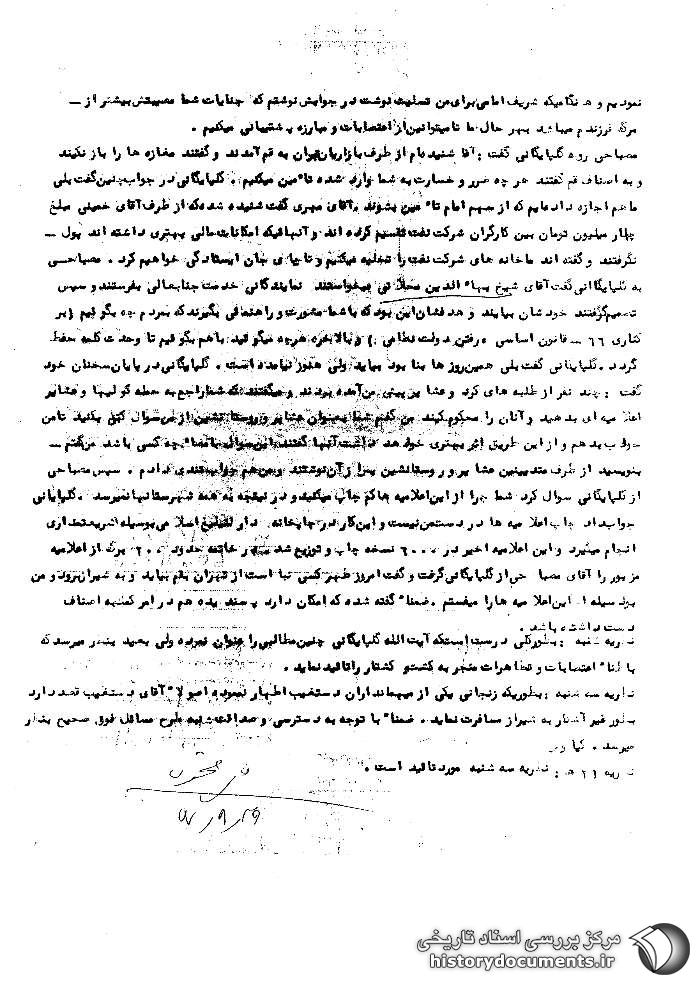 نمودیم و هنگامیکه شریف امامی برای من تسلیت نوشت در جوابش نوشتم که جنایات شما مصیبتش بیشتر از ـ
مرگ فرزندم میباشد بهر حال ما تا میتوانیم از اعتصابات و مبارزه پشتیبانی میکنیم .
مصباحی رو به گلپایگانی گفت : آقا شنیده‌ام از طرف بازاریان تهران به قم آمدند و گفتند مغازه ها را باز نکنید
و به اصناف قم گفتند هر چه ضرر و خسارت به شما وارد شده تاءمین میکنیم . گلپایگانی در جواب چنین گفت بلی
ماهم اجازه داده‌ایم که از سهم امام تاءمین بشوند . آقای مهری گفت شنیده شده که از طرف آقای خمینی مبلغ
چهار میلیون تومان بین کارگران شرکت نفت تقسیم کرده اند و آنهائیکه امکانات مالی بهتری داشته اند پول ـ
نگرفتند و گفته اند ما خانه های شرکت نفت را تخلیه میکنیم و تا پای جان ایستادگی خواهیم کرد . مصباحی
به گلپایگانی گفت آقای شیخ بهاءالدین محلاتی میخواستند نمایندگانی خدمت جنابعالی بفرستند و سپس
تصمیم گرفتند خودشان بیایند و هدفشان این بود که با شما مشورت و راهنمائی بگیرند که بمردم چه بگوئیم (بر
کناری ۶۶ ـ قانون اساسی ـ رفتن دولت نظامی ) و بالاخره هرچه میگوئید باهم بگوئیم تا وحدت کلمه حفظ
گردد . گلپایگانی گفت بلی همین روزها بنا بود بیاید ولی هنوز نیامده است . گلپایگانی در پایان سخنان خود
گفت : چند نفر از طلبه های کرد و عشایر پیش من آمده بودند و میگفتند که شما راجع به حمله کولیها و عشایر
اعلامیه ای بدهید و آنان را محکوم کنید من گفتم شما بعنوان عشایر و روستا نشین از من سوال کتبی بکنید تا من
جواب بدهم و از این طریق اثر بهتری خواهد داشت آنها گفتند این سوال با امضاء چه کسی باشد من گفتم ـ
بنویسید از طرف متدینین عشایر و روستانشین بعد از آن نوشتند و من هم جواب تندی دادم . سپس مصباحی
از گلپایگانی سوال کرد شما چرا از این اعلامیه ها کم چاپ میکنید و در نتیجه به همه شهرستانها نمیرسد . گلپایگانی
جواب داد چاپ اعلامیه ها در دست من نیست و این کار در چاپخانه دارالتبلیغ اسلامی بوسیله شریعتمداری
انجام میگیرد و این اعلامیه اخیر در ۶۰۰۰ نسخه چاپ و توزیع شد در خاتمه حدود ۲۰۰ برگ از اعلامیه
مزبور را آقای مصباحی از گلپایگانی گرفت و گفت امروز ظهر کسی بنا است از تهران بقم بیاید و به شیراز برود و من
بوسیله او این اعلامیه ها را میفرستم . ضمناء گفته شده که امکان دارد پسندیده هم در امر کمک به اصناف
دست داشته باشد .
نظریه شنبه : بطورکلی درست است که آیت الله گلپایگانی چنین مطالبی را عنوان نموده ولی بعید بنظر میرسد که
با اعتصابات و تظاهرات منجر به کشت و کشتار را تائید نماید .
نظریه سه شنبه : بطوریکه زنجانی یکی از میهمانداران دستغیب اظهار نموده اصولاء آقای دستغیب قصد دارد
بطور غیر آشکار به شیراز مسافرت نماید . ضمناء با توجه به دسترسی و صداقت شنبه طرح مسائل فوق صحیح بنظر
میرسد .
نظریه ۲۱ ه : نظریه سه شنبه مورد تائید است .
مرکز بررسی اسناد تاریخی
historydocuments.ir